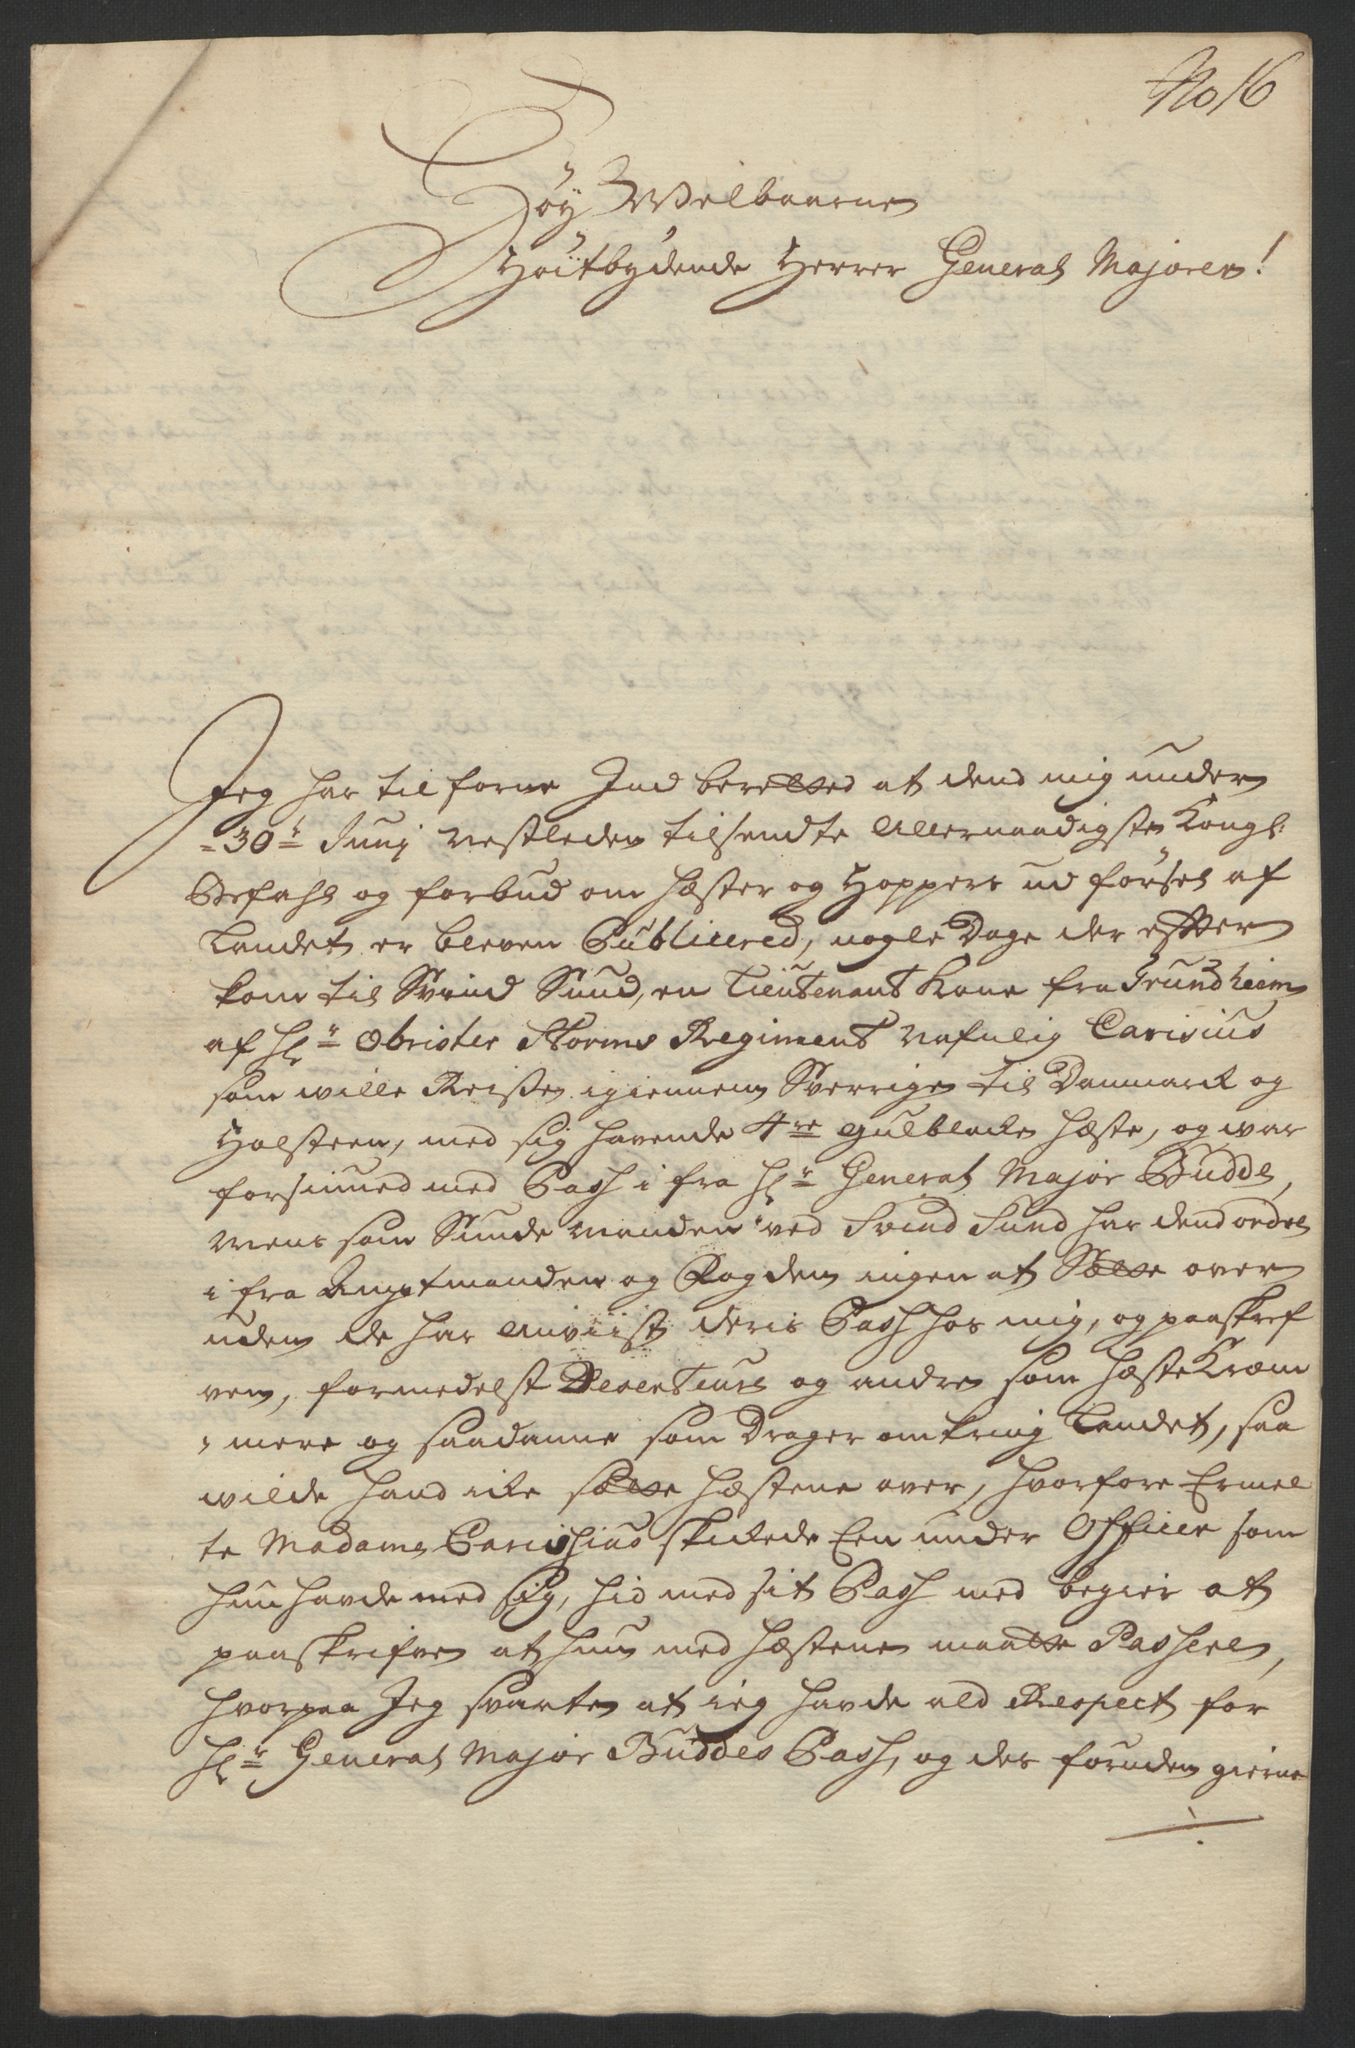 No 16
Höy Welbaarne
Höitbydende Herrer General Majoren!
Jeg har til forne Ind beretted at dend mig under
30te Junj nestleden tilsendte allernaadigste Kongl:
Befahl og forbud om hæster og Hoppers ud förseл af
Landet er bleven Publicered, nogle Dage der efter
kom til Svind Sund, en Lieutenant Kone fra Trundheim
af Hr Obrister Storms Regiment nafnlig Carisius
som wille Reise igiennem Sverrige til Danmarck og
Holsteen, med sig havende 4re gulblacke hæste, og war
forsiuned med Pass i fra Hr General Major Budde,
Mens som Sunde manden ved Svind Sund har dend ordre
i fra Amptmanden og Fogden ingen at Sætte over
uden de har anviist deris Pass hos mig, og paaskref
ven, formedelst Deserteurs og andre som hæste Kræm
mere og saadanne som Drager omkring Landet, saa
wilde hand icke sætte hæstene over, hvorfore Ermel
te Madame Carisius skickede Een under Officer som
hun havde med sig, hid med sit Pass med begier at
paaskrifve at hun med hæstene maatte Passere,
hvorpaa Jeg svarte at ieg havde ald Respect for
Hr General Major Buddes Pass, og des foruden gierne